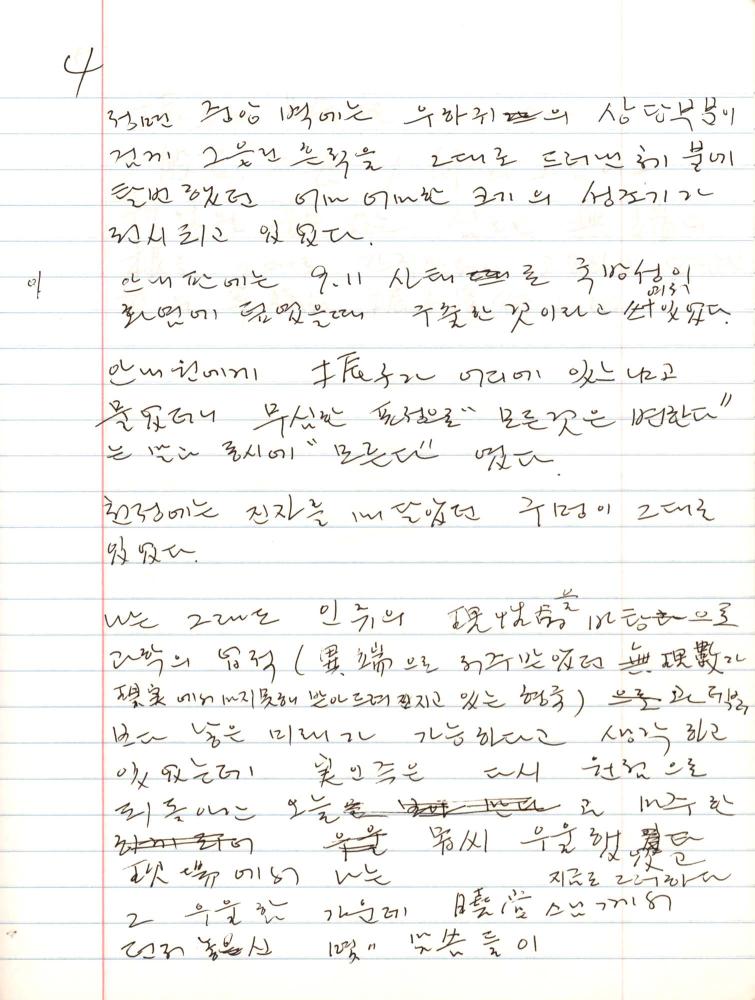 4
정면 중앙 벽에는 우하귀의 상단부분이
검게 그을린 흔적을 그대로 드러낸 채 불에
탈번 했던 어마어마한 크기의 성조기가
전시되고 있었다.
안내판에는 9.11 사태로 국방성이
화염에 덮였을때 구출한 것이라고 씌여있었다.
안내원에게 어디에 있느냐고
물었더니 무심한 표정으로 "모든것은 변한다"
는 말과 동시에 "모른다" 였다.
천정에는 진자를 매달았던 구멍이 그대로
있었다.
나는 그래도 인류의 理性을 바탕으로
과학의 업적 (異端으로 저주받았던 無理數가
現実에서 마지못해 받아드려지고 있는 형국)
보다 나은 미래가 가능하다고 생각하고
있었는데 다시 원점으로
되돌아가는 오늘과 마주한
現場에서 나는 몹씨 우울했었고
지금도 그러하다
그 우울한 가운데 曉堂스님께서
던져 놓으신 몇 말씀들이